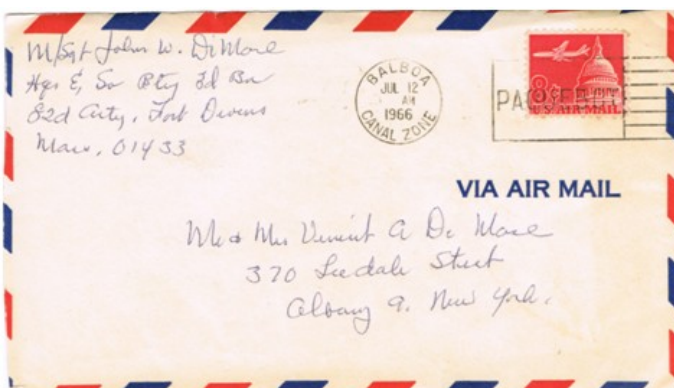 M/Sgt John W. DiMore
Hqs & Sv Btry 3d Bn
82d Arty, Fort Devens
Mass, 01433
BALBOA
JUL 12
AM
1966
CANAL ZONE
8¢
U.S. AIR MAIL
VIA AIR MAIL
Mr & Mrs Vincent A De More
370 Street
Albany 9. New York.